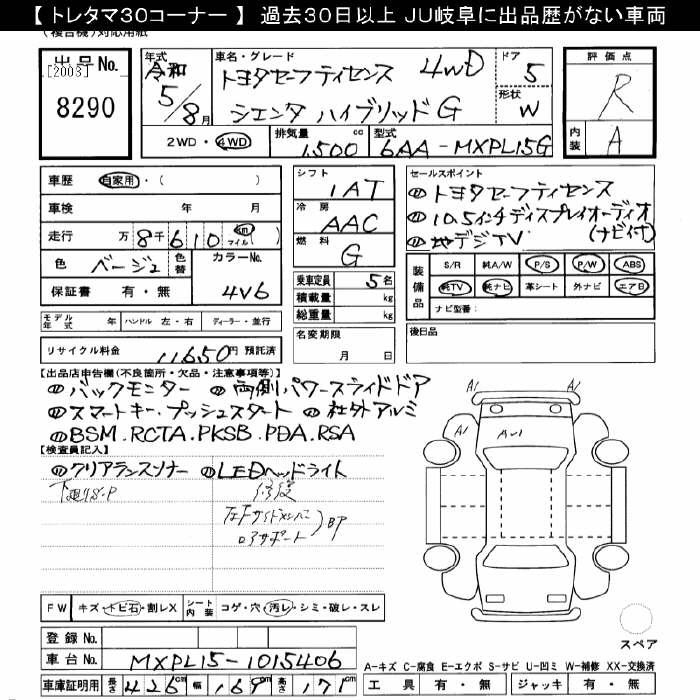 【 トレタマ30コーナー 】 過去30日以上 JU岐阜に出品歴がない車両
(複合機)対応用紙
出品No.
[2003]
8290
年式 令和 5/8月
車名・グレード トヨタセーフティセンス 4WD
シエンタ ハイブリッド G
ドア 5
形状 W
2WD・4WD 排気量 1,500 cc 型式 6AA-MXPL15G
評価点 R
内装 A
車歴 自家用・( )
車検 年 月
走行 万 8千 6 1 0 km マイル ( )
色 ベージュ 色替 カラーNo. 4V6
保証書 有・無
モデル年式 年 ハンドル 左・右 ディーラー・並行
リサイクル料金 11650円 預託済
シフト 1AT
冷房 AAC
燃料 G
乗車定員 5名
積載量 kg
総重量 kg
名変期限 月 日
セールスポイント
トヨタセーフティセンス
10.5インチディスプレイオーディオ
地デジTV (ナビ付)
装備品 S/R 純A/W P/S P/W ABS
純TV 純ナビ 革シート 外ナビ エアB
ナビ型番:
後日品
【出品店申告欄(不良箇所・欠品・注意事項等)】
バックモニター 両側パワースライドドア
スマートキー.プッシュスタート 社外アルミ
BSM.RCTA.PKSB.PDA.RSA
【検査員記入】
クリアランスソナー LEDヘッドライト
下廻りS・P 修復
左Fサイドメンバー
ロアサポート BP
A1 A1
A1 AU1
FW キズ・トビ石・割レX シート内装 コゲ・穴・汚レ・シミ・破レ・スレ
スペア
登録No.
車台No. MXPL15-1015406
A-キズ C-腐食 E-エクボ S-サビ U-凹ミ W-補修 XX-交換済
車庫証明用 長さ 426cm 幅 169cm 高さ 171cm
工具 有・無 ジャッキ 有・無